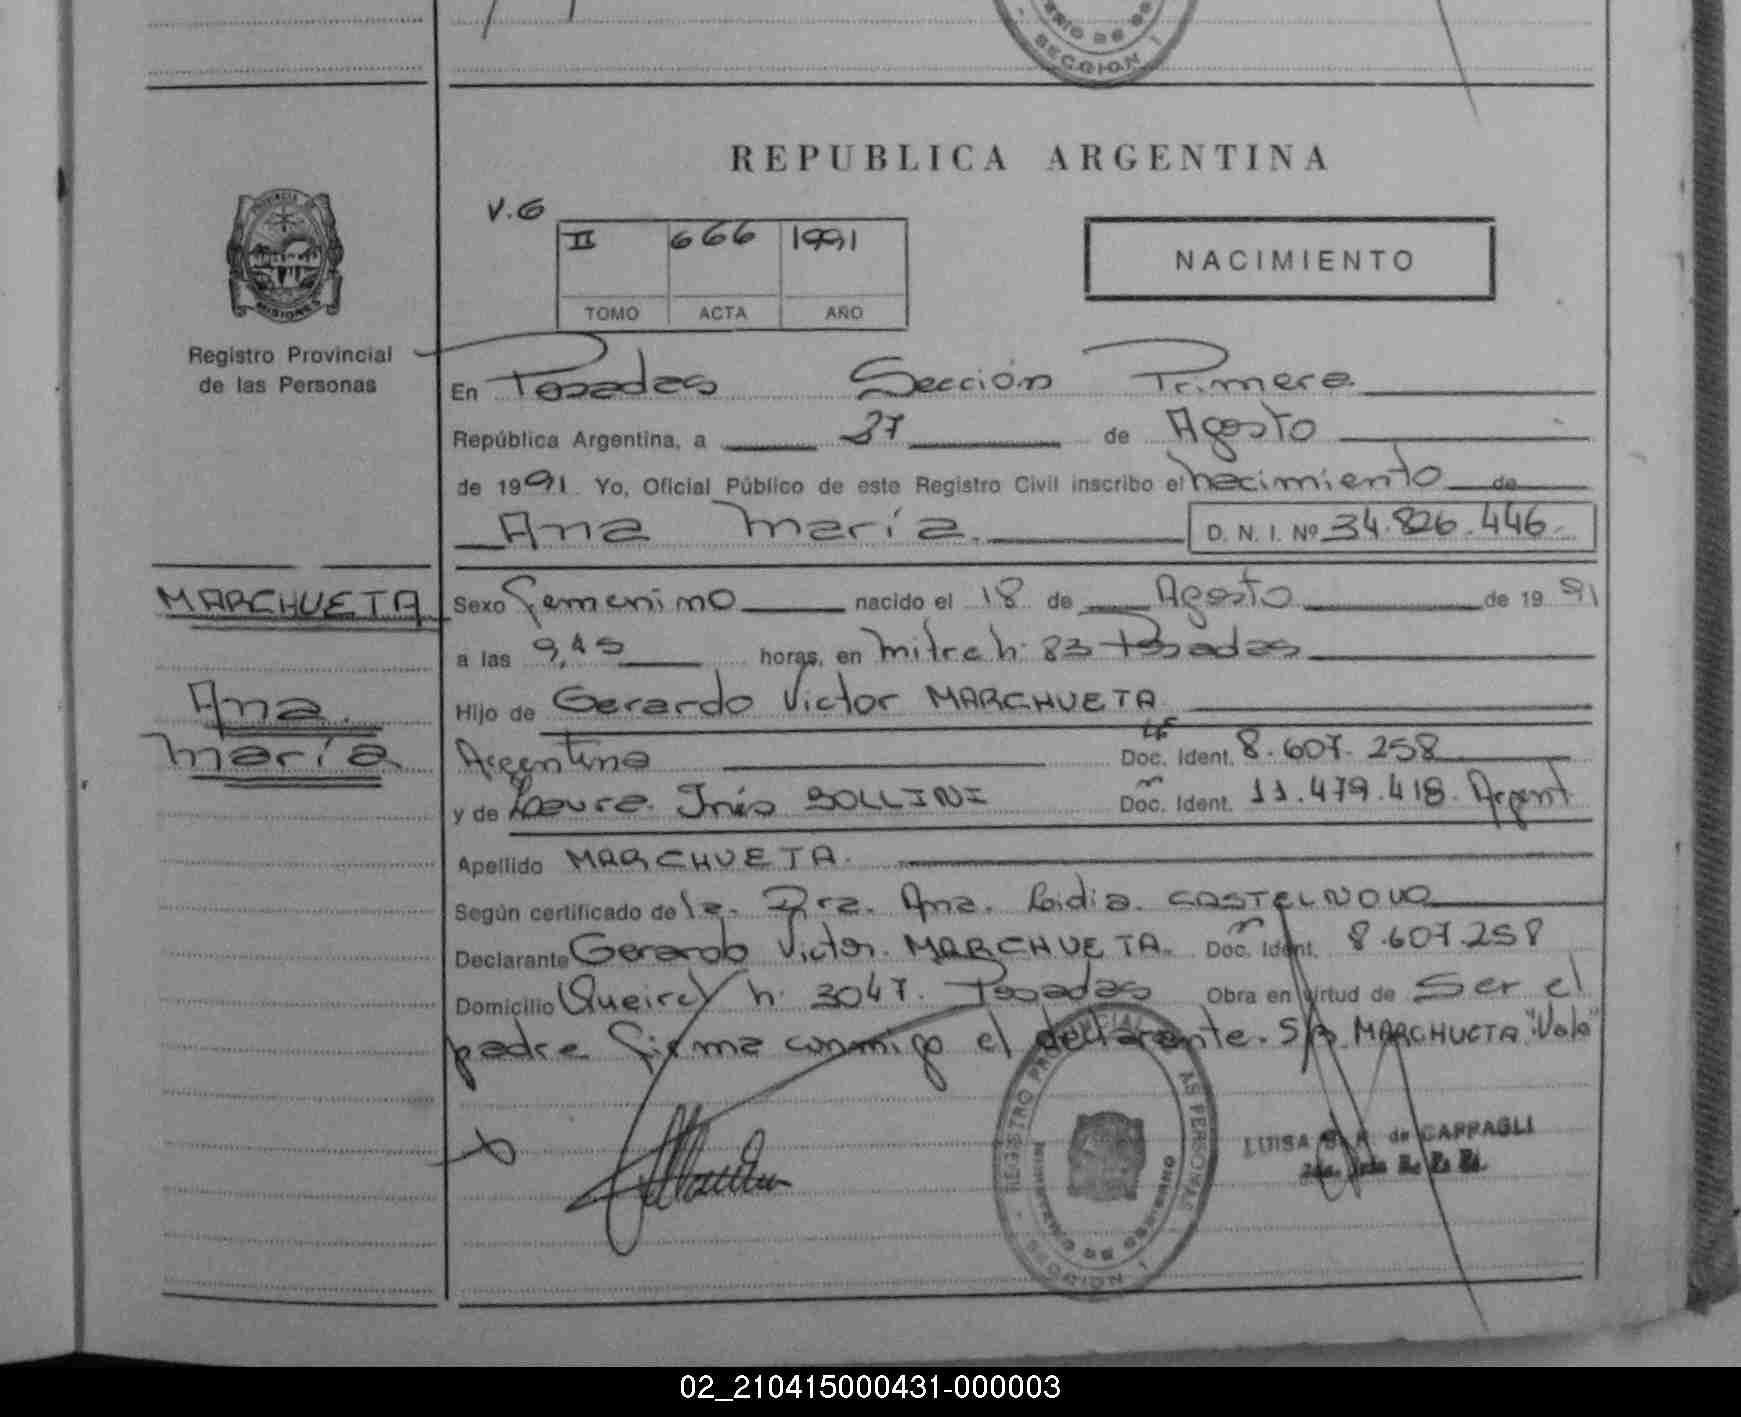 SECCION I
REPUBLICA ARGENTINA
V.6
II 666 1991
TOMO ACTA AÑO
NACIMIENTO
PROVINCIA
MISIONES
Registro Provincial
de las Personas
En Posadas Sección Primera
República Argentina, a 27 de Agosto
de 1991 Yo, Oficial Público de este Registro Civil inscribo el nacimiento de
Ana María. D. N. I. Nº 34.826.446.
MARCHUETA
Ana
María
Sexo femenino nacido el 18 de Agosto de 19 91
a las 9,45 horas, en Mitre h: 83 Posadas
Hijo de Gerardo Victor MARCHUETA
Argentino Doc. Ident. 8.607.258
y de Laura Inés BOLLINI Doc. Ident. 11.479.418. Argent
Apellido MARCHUETA.
Según certificado de la. Dra. Ana. Lidia. CASTELNOVO
Declarante Gerardo Victor. MARCHUETA. Doc. Ident. 8.607.258
Domicilio Queirel h: 3047. Posadas Obra en virtud de Ser el
padre firma conmigo el declarante. S/R MARCHUETA "Vale"
REGISTRO PROVINCIAL DE LAS PERSONAS
SECCION I
LUISA de CAPPAGLI
02_210415000431-000003